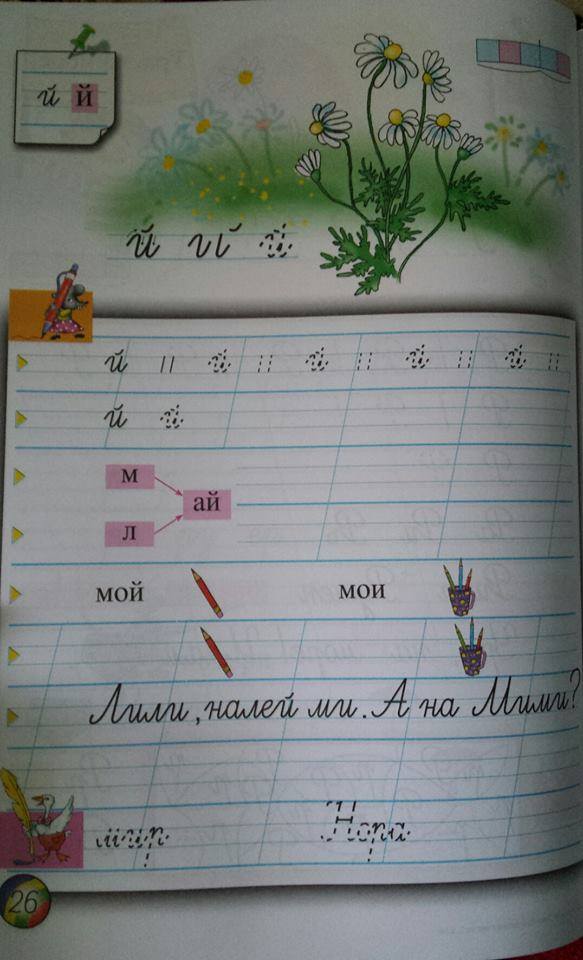 й й
й ıĭ й
й ıı й ıı й ıı й ıı й ıı
й й
м
ай
л
мой мои
Лили, налей ми. А на Мими?
мир Нора
26